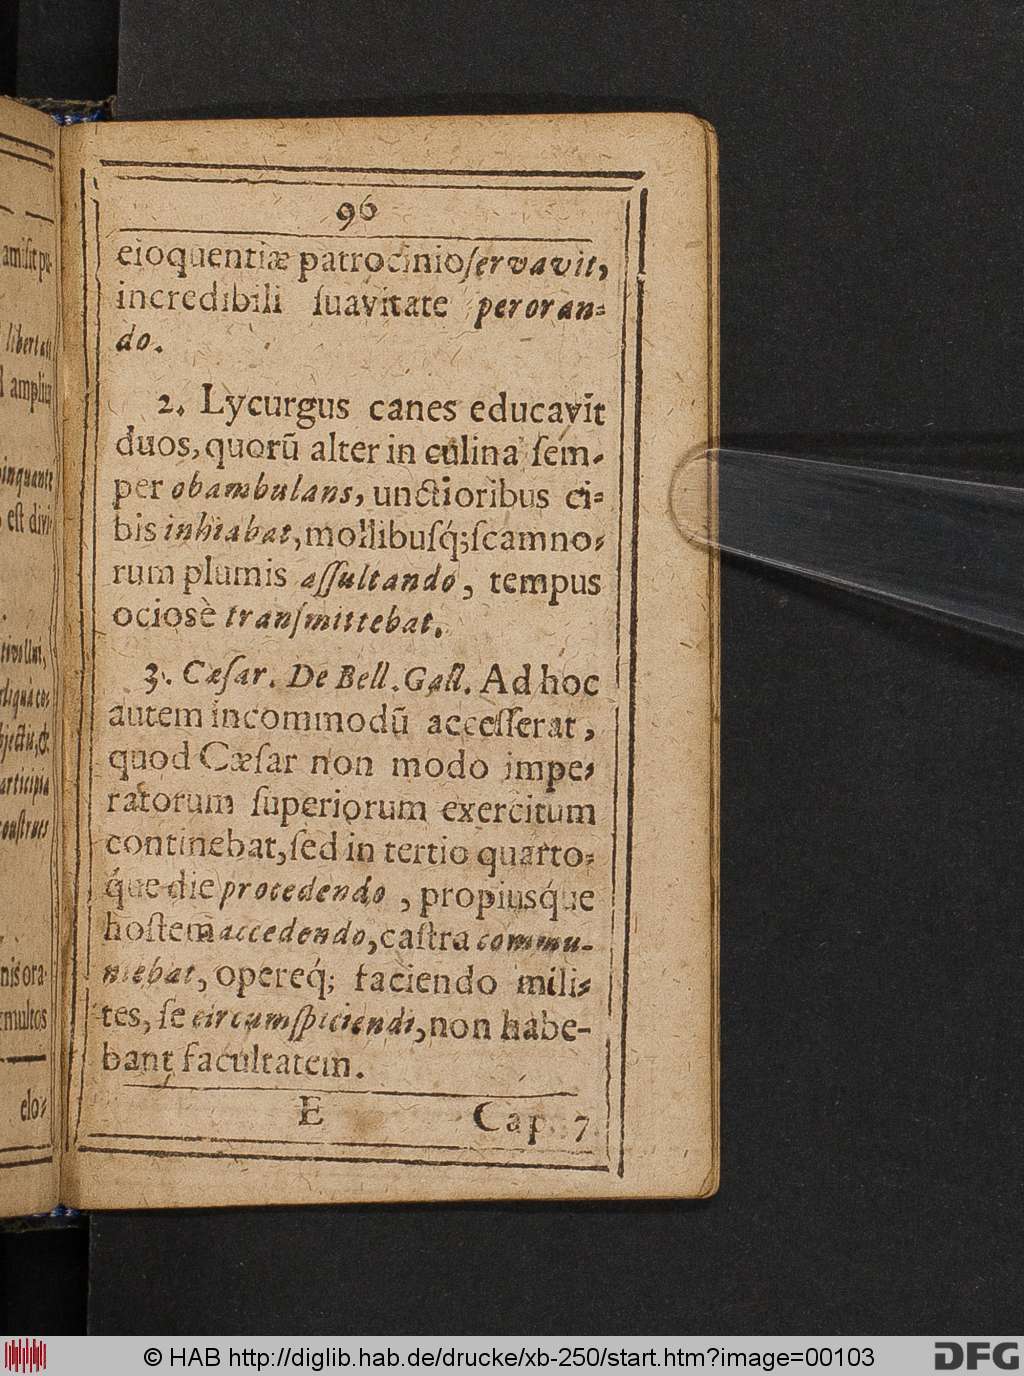 amiſit pu-
libertati
ampliu
inquante
eſt divi-
96
eloquentiæ patrocinio ſervavit,
incredibili ſuavitate peroran-
do.
2. Lycurgus canes educavit
duos, quorũ alter in culina ſem-
per obambulans, unctioribus ci-
bis inhiabat, mollibuſq́; ſcamno-
rum plumis aſſultando, tempus
ociosè tranſmittebat.
3. Cæſar. De Bell. Gall. Ad hoc
autem incommodũ acceſſerat,
quod Cæſar non modo impe-
ratorum ſuperiorum exercitum
continebat, ſed in tertio quarto-
q́ue die procedendo, propiusq́ue
hoſtem accedendo, caſtra commu-
niebat, opereq́; faciendo mili-
tes, ſe circumſpiciendi, non habe-
bant facultatem.
E Cap. 7.
articipia
nis ora-
multos
elo-
© HAB http://diglib.hab.de/drucke/xb-250/start.htm?image=00103
DFG